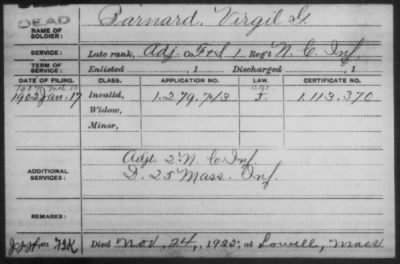 DEAD
NAME OF SOLDIER: Barnard, Virgil G.
SERVICE: Late rank, Adj. Co. F & S, 1 Reg't N. C. Inf.
TERM OF SERVICE: Enlisted , 1 Discharged , 1
DATE OF FILING. CLASS. APPLICATION NO. LAW. CERTIFICATE NO.
1902 Jan. 17 Invalid, 1.279.713 1.113.370
Widow,
Minor,
ADDITIONAL SERVICES: Adjt 2" N. C. Inf.
D. 25 Mass. Inf.
REMARKS:
Died Nov. 24, 1922, at Lowell, Mass